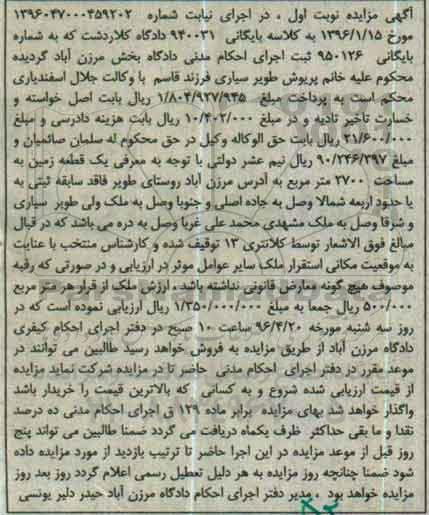 آگهی مزایده نوبت اول ، در اجرای نیابت شماره ۱۳۹۶۰۴۷۰۰۰۴۵۹۲۰۲
مورخ ۱۳۹۶/۱/۱۵ به کلاسه بایگانی ۹۴۰۰۳۱ دادگاه کلاردشت که به شماره
بایگانی ۹۵۰۱۲۶ ثبت اجرای احکام مدنی دادگاه بخش مرزن آباد گردیده
محکوم علیه خانم پریوش طویر سیاری فرزند قاسم با وکالت جلال اسفندیاری
محکم است به پرداخت مبلغ ۱/۸۰۴/۹۲۷/۹۴۵ ریال بابت اصل خواسته و
خسارت تأخیر تادیه و در مبلغ ۱۰/۴۰۲/۰۰۰ ریال بابت هزینه دادرسی و مبلغ
۲۱/۶۰۰/۰۰۰ ریال بابت حق الوکاله وکیل در حق محکوم له سلمان صائمیان و
مبلغ ۹۰/۲۴۶/۳۹۷ ریال نیم عشر دولتی با توجه به معرفی یک قطعه زمین به
مساحت ۲۷۰۰ متر مربع به آدرس مرزن آباد روستای طویر فاقد سابقه ثبتی به
یا حدود اربعه شمالا وصل به جاده اصلی و جنوبا وصل به ملک ولی طویر سیاری
و شرقا وصل به ملک مشهدی محمد علی غربا وصل به دره می باشد که در قبال
مبالغ فوق الاشعار توسط کلانتری ۱۳ توقیف شده و کارشناس منتخب با عنایت
به موقعیت مکانی استقرار ملک سایر عوامل موثر در ارزیابی و در صورتی که رقبه
موصوف هیچ گونه معارض قانونی نداشته باشد ، ارزش ملک از قرار هر متر مربع
۵۰۰/۰۰۰ ریال جمعا به مبلغ ۱/۳۵۰/۰۰۰/۰۰۰ ریال ارزیابی نموده است که در
روز سه شنبه مورخه ۹۶/۴/۲۰ ساعت ۱۰ صبح در دفتر اجرای احکام کیفری
دادگاه مرزن آباد از طریق مزایده به فروش خواهد رسید طالبین می توانند در
موعد مقرر در دفتر اجرای احکام مدنی حاضر تا در مزایده شرکت نماید مزایده
از قیمت ارزیابی شده شروع و به کسانی که بالاترین قیمت را خریدار باشد
واگذار خواهد شد بهای مزایده برابر ماده ۱۲۹ ق اجرای احکام مدنی ده درصد
نقدا و ما بقی حداکثر ظرف یکماه دریافت می گردد ضمنا طالبین می تواند پنج
روز قبل از موعد مزایده در این اجرا حاضر تا ترتیب بازدید از مورد مزایده داده
شود ضمنا چنانچه روز مزایده به هر دلیل تعطیل رسمی اعلام گردد روز بعد روز
مزایده خواهد بود . مدیر دفتر اجرای احکام دادگاه مرزن آباد حیدر دلیر یونسی